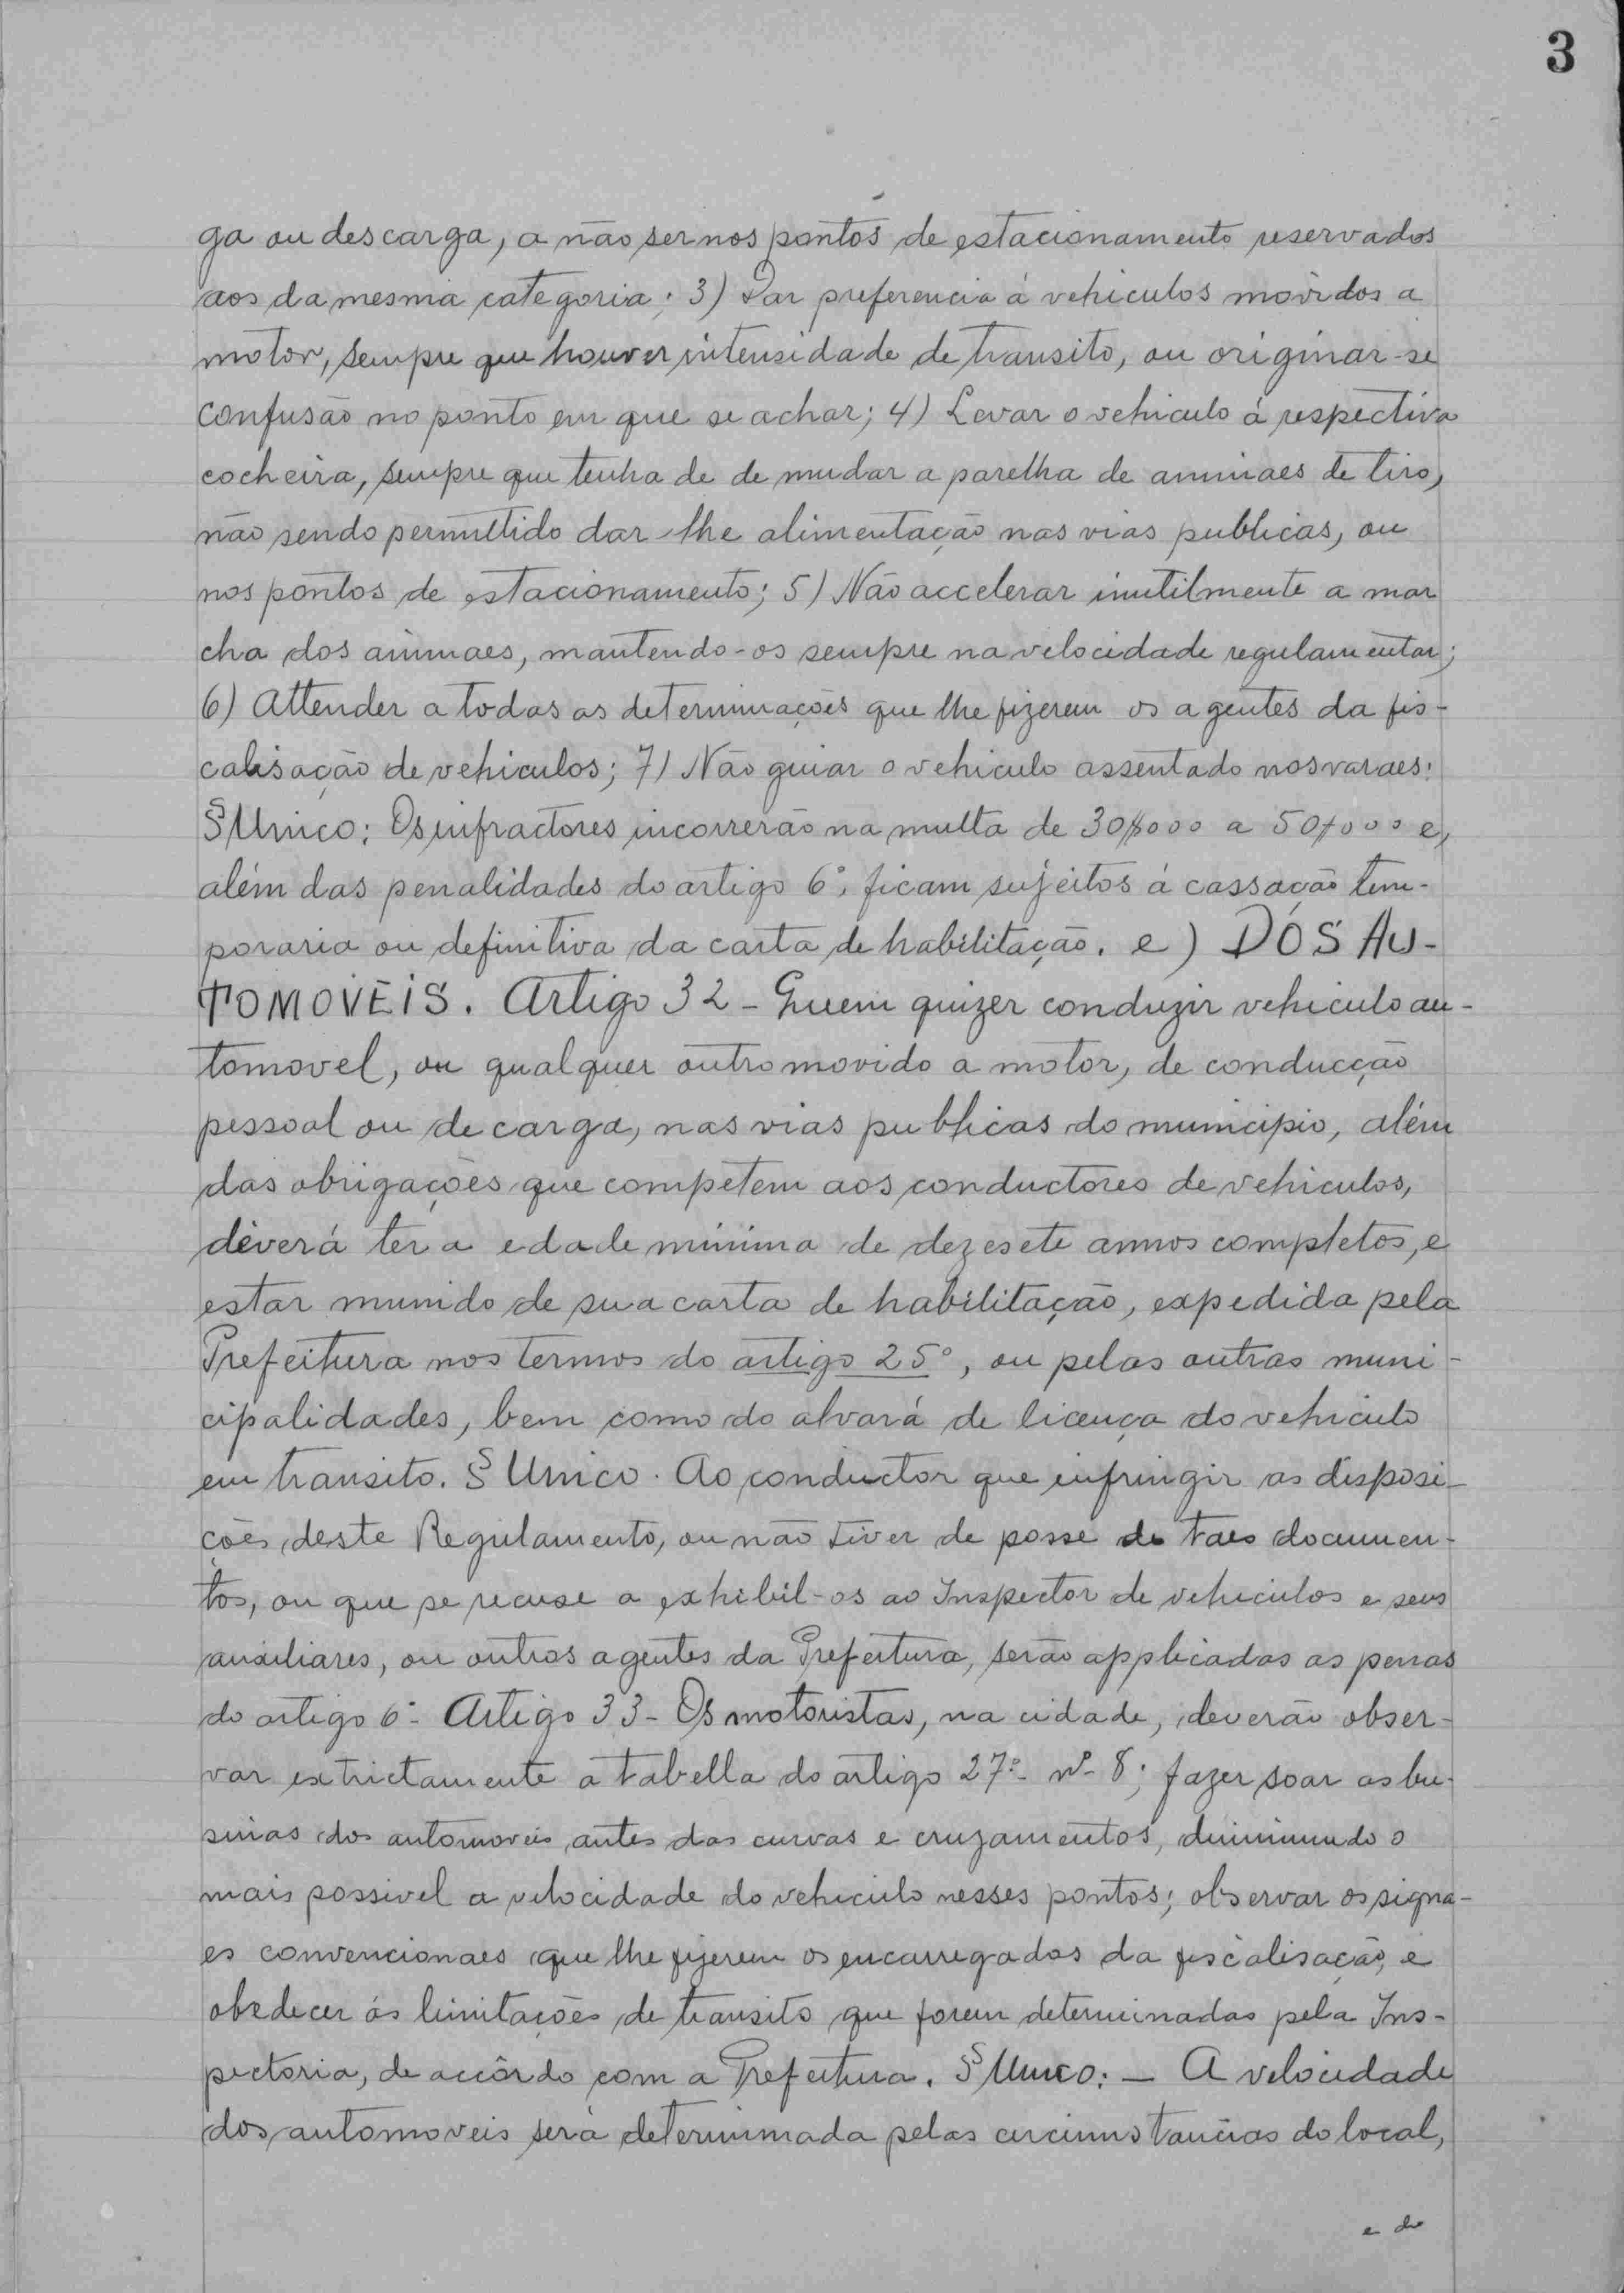 3
ga ou descarga, a não ser nos pontos de estacionamento reservados
aos da mesma categoria; 3) Dar preferencia á vehiculos movidos a
motor, sempre que houver intensidade de transito, ou originar-se
confusão no ponto em que se achar; 4) Levar o vehiculo á respectiva
cocheira, sempre que tenha de de mudar a parelha de animaes de tiro,
não sendo permittido dar-lhe alimentação nas vias publicas, ou
nos pontos de estacionamento; 5) Não accelerar inutilmente a mar
cha dos animaes, mantendo-os sempre na velocidade regulamentar;
6) Attender a todas as determinações que lhe fizerem os agentes da fis-
calisação de vehiculos; 7) Não guiar o vehiculo assentado nos varaes:
§ Unico: Os infractores incorrerão na multa de 30$000 a 50$000 e,
além das penalidades do artigo 6º, ficam sujeitos á cassação tem-
poraria ou definitiva da carta de habilitação. e) DOS AU-
TOMOVEIS. Artigo 32 - Quem quizer conduzir vehiculo au-
tomovel, ou qualquer outro movido a motor, de conducção
pessoal ou de carga, nas vias publicas do municipio, além
das obrigações que competem aos conductores de vehiculos,
deverá ter a edade minima de dezesete annos completos, e
estar munido de sua carta de habilitação, expedida pela
Prefeitura nos termos do artigo 25º, ou pelas outras muni-
cipalidades, bem como do alvará de licença do vehiculo
em transito. § Unico. Ao conductor que infringir as disposi-
ções deste Regulamento, ou não tiver de posse de taes documen-
tos, ou que se recuse a exhibil-os ao Inspector de vehiculos e seus
auxiliares, ou outros agentes da Prefeitura, serão applicadas as penas
do artigo 6º- Artigo 33- Os motoristas, na cidade, deverão obser-
var extrictamente a tabella do artigo 27º- nº- 8; fazer soar as bu-
sinas dos automoveis antes das curvas e cruzamentos, diminuindo o
mais possivel a velocidade do vehiculo nesses pontos; observar os signa-
es convencionaes que lhe fizerem os encarregados da fiscalisação, e
obedecer ás limitações de transito que forem determinadas pela Ins-
pectoria, de accôrdo com a Prefeitura. § Unico: - A velocidade
dos automoveis será determinada pelas circumstancias do local,
e do